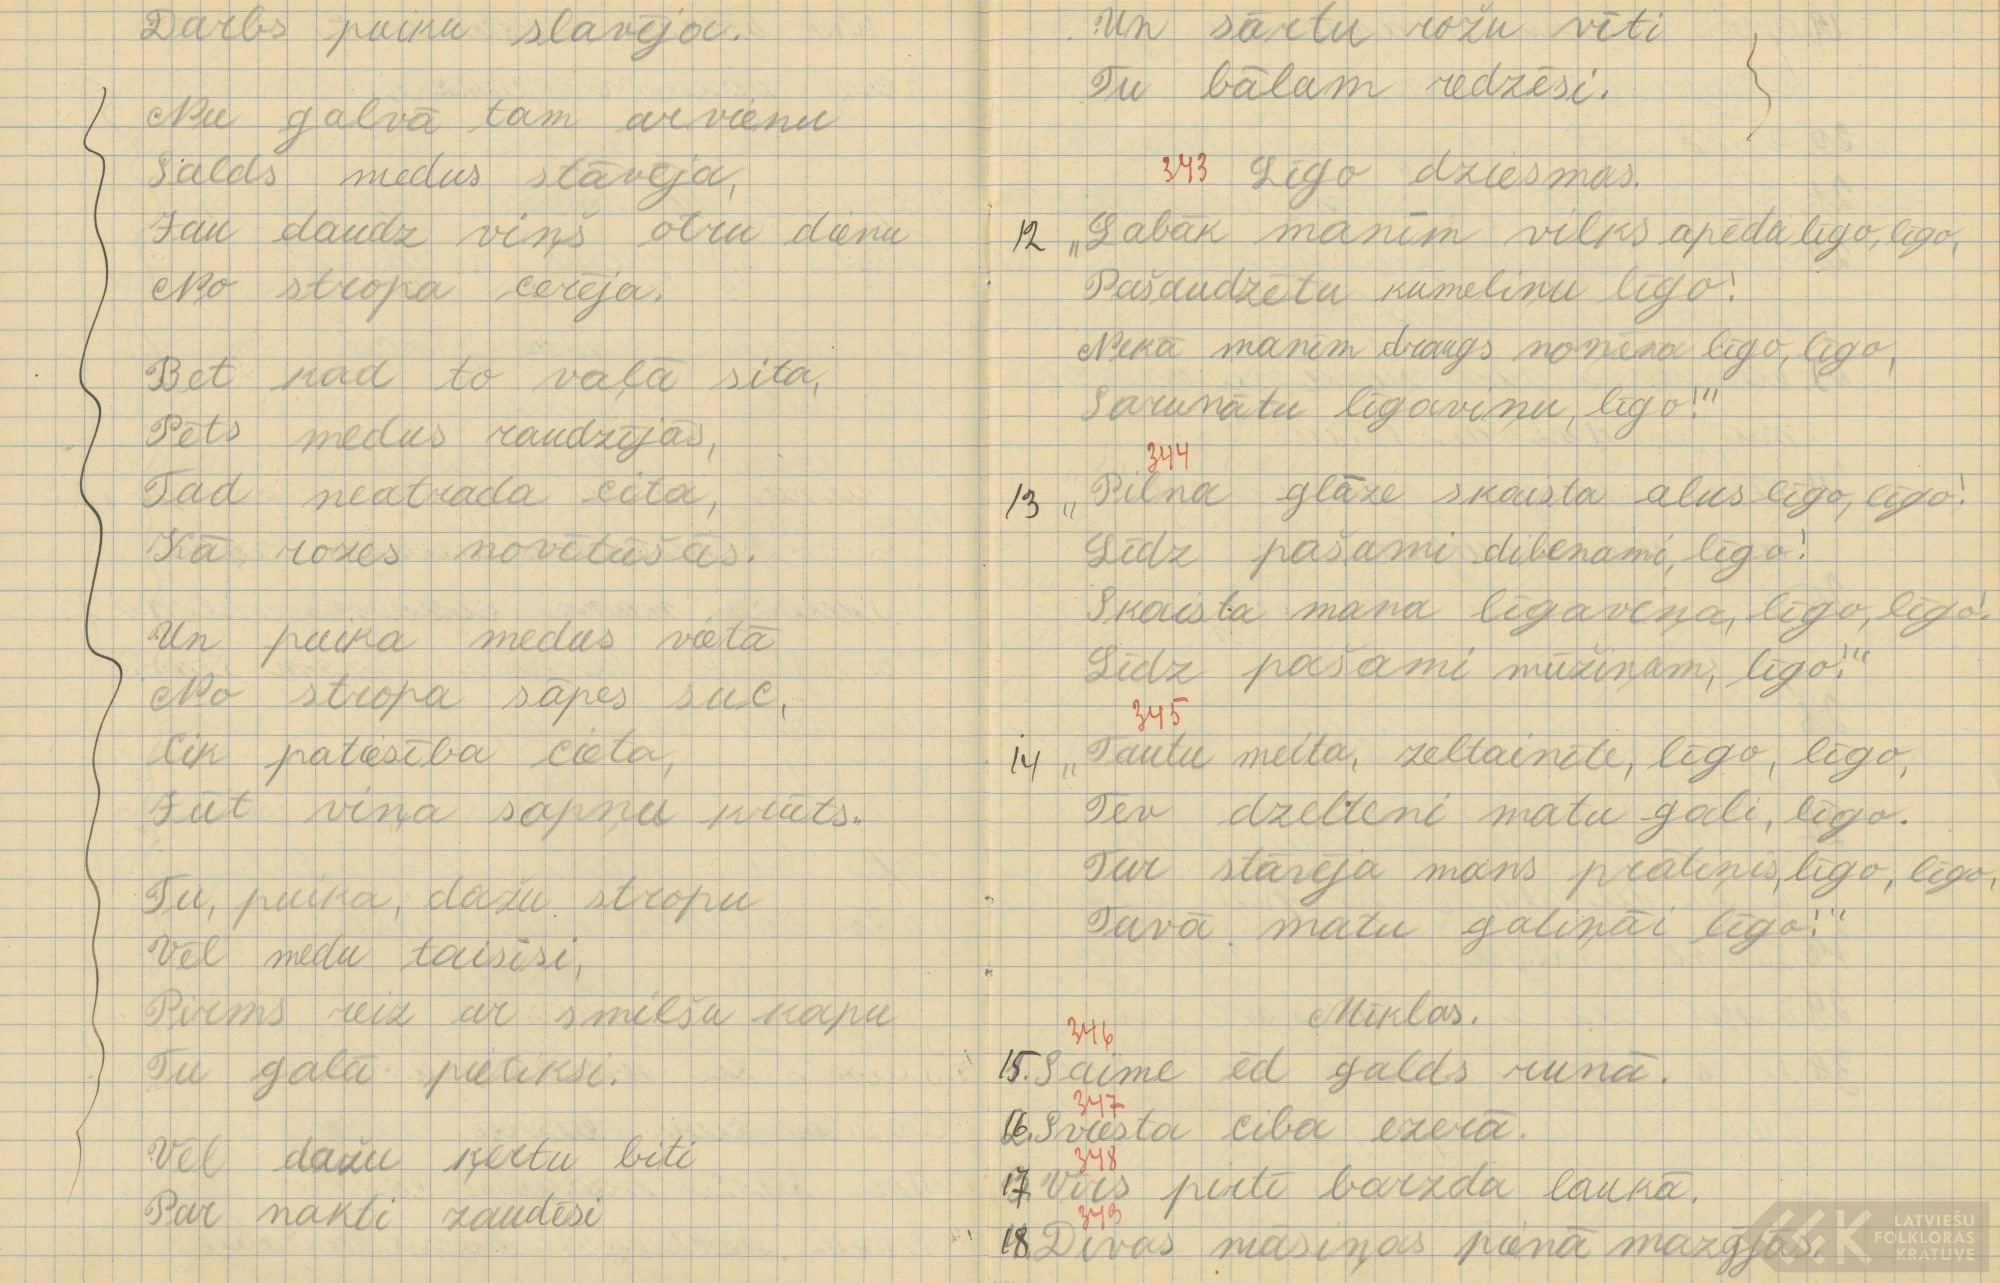 Darbs puiku slavēja.
Nu galvā tam arvienu
Salds medus stāvēja,
Jau daudz viņš otru dienu
No stropa cerēja.
Bet kad to vaļā sita,
Pēts medus raudzījās,
Tad neatrada cita,
Kā rozes novītušās.
Un puika medus vietā
No stropa sāpes suc,
Cik patiesība cieta,
Jūt viņa sapņu krūts.
Tu, puika, dažu stropu
Vēl medu taisīsi,
Pirms reiz ar smilšu kapu
Tu galā pietiksi.
Vēl dažu ķertu biti
Par nakti zaudēsi
Un sārtu rožu vīti
Tu bālam redzēsi.
343 Līgo dziesmas.
12 „Labāk manim vilks apēda līgo, līgo,
Pašaudzētu kumeliņu līgo!
Nekā manim draugs noņēma līgo, līgo,
Sarunātu līgaviņu, līgo!"
344
13 „Pilna glāze skaista alus līgo, līgo!
Līdz pašami dibenami, līgo!
Skaista mana līgaviņa, līgo, līgo!
Līdz pašami mūžiņam, līgo!"
345
14 „Tautu meita, zeltainīte, līgo, līgo,
Tev dzelteni matu gali, līgo.
Tur stāvēja mans prātiņis, līgo, līgo,
Tavā matu galiņāi līgo!"
Mīklas.
346
15. Saime ēd galds runā.
347
16. Sviesta ciba ezerā.
348
17 Vīrs pirtī barzda laukā.
349
18. Divas māsiņas pienā mazgājas.
LATVIEŠU
FOLKLORAS
KRĀTUVE